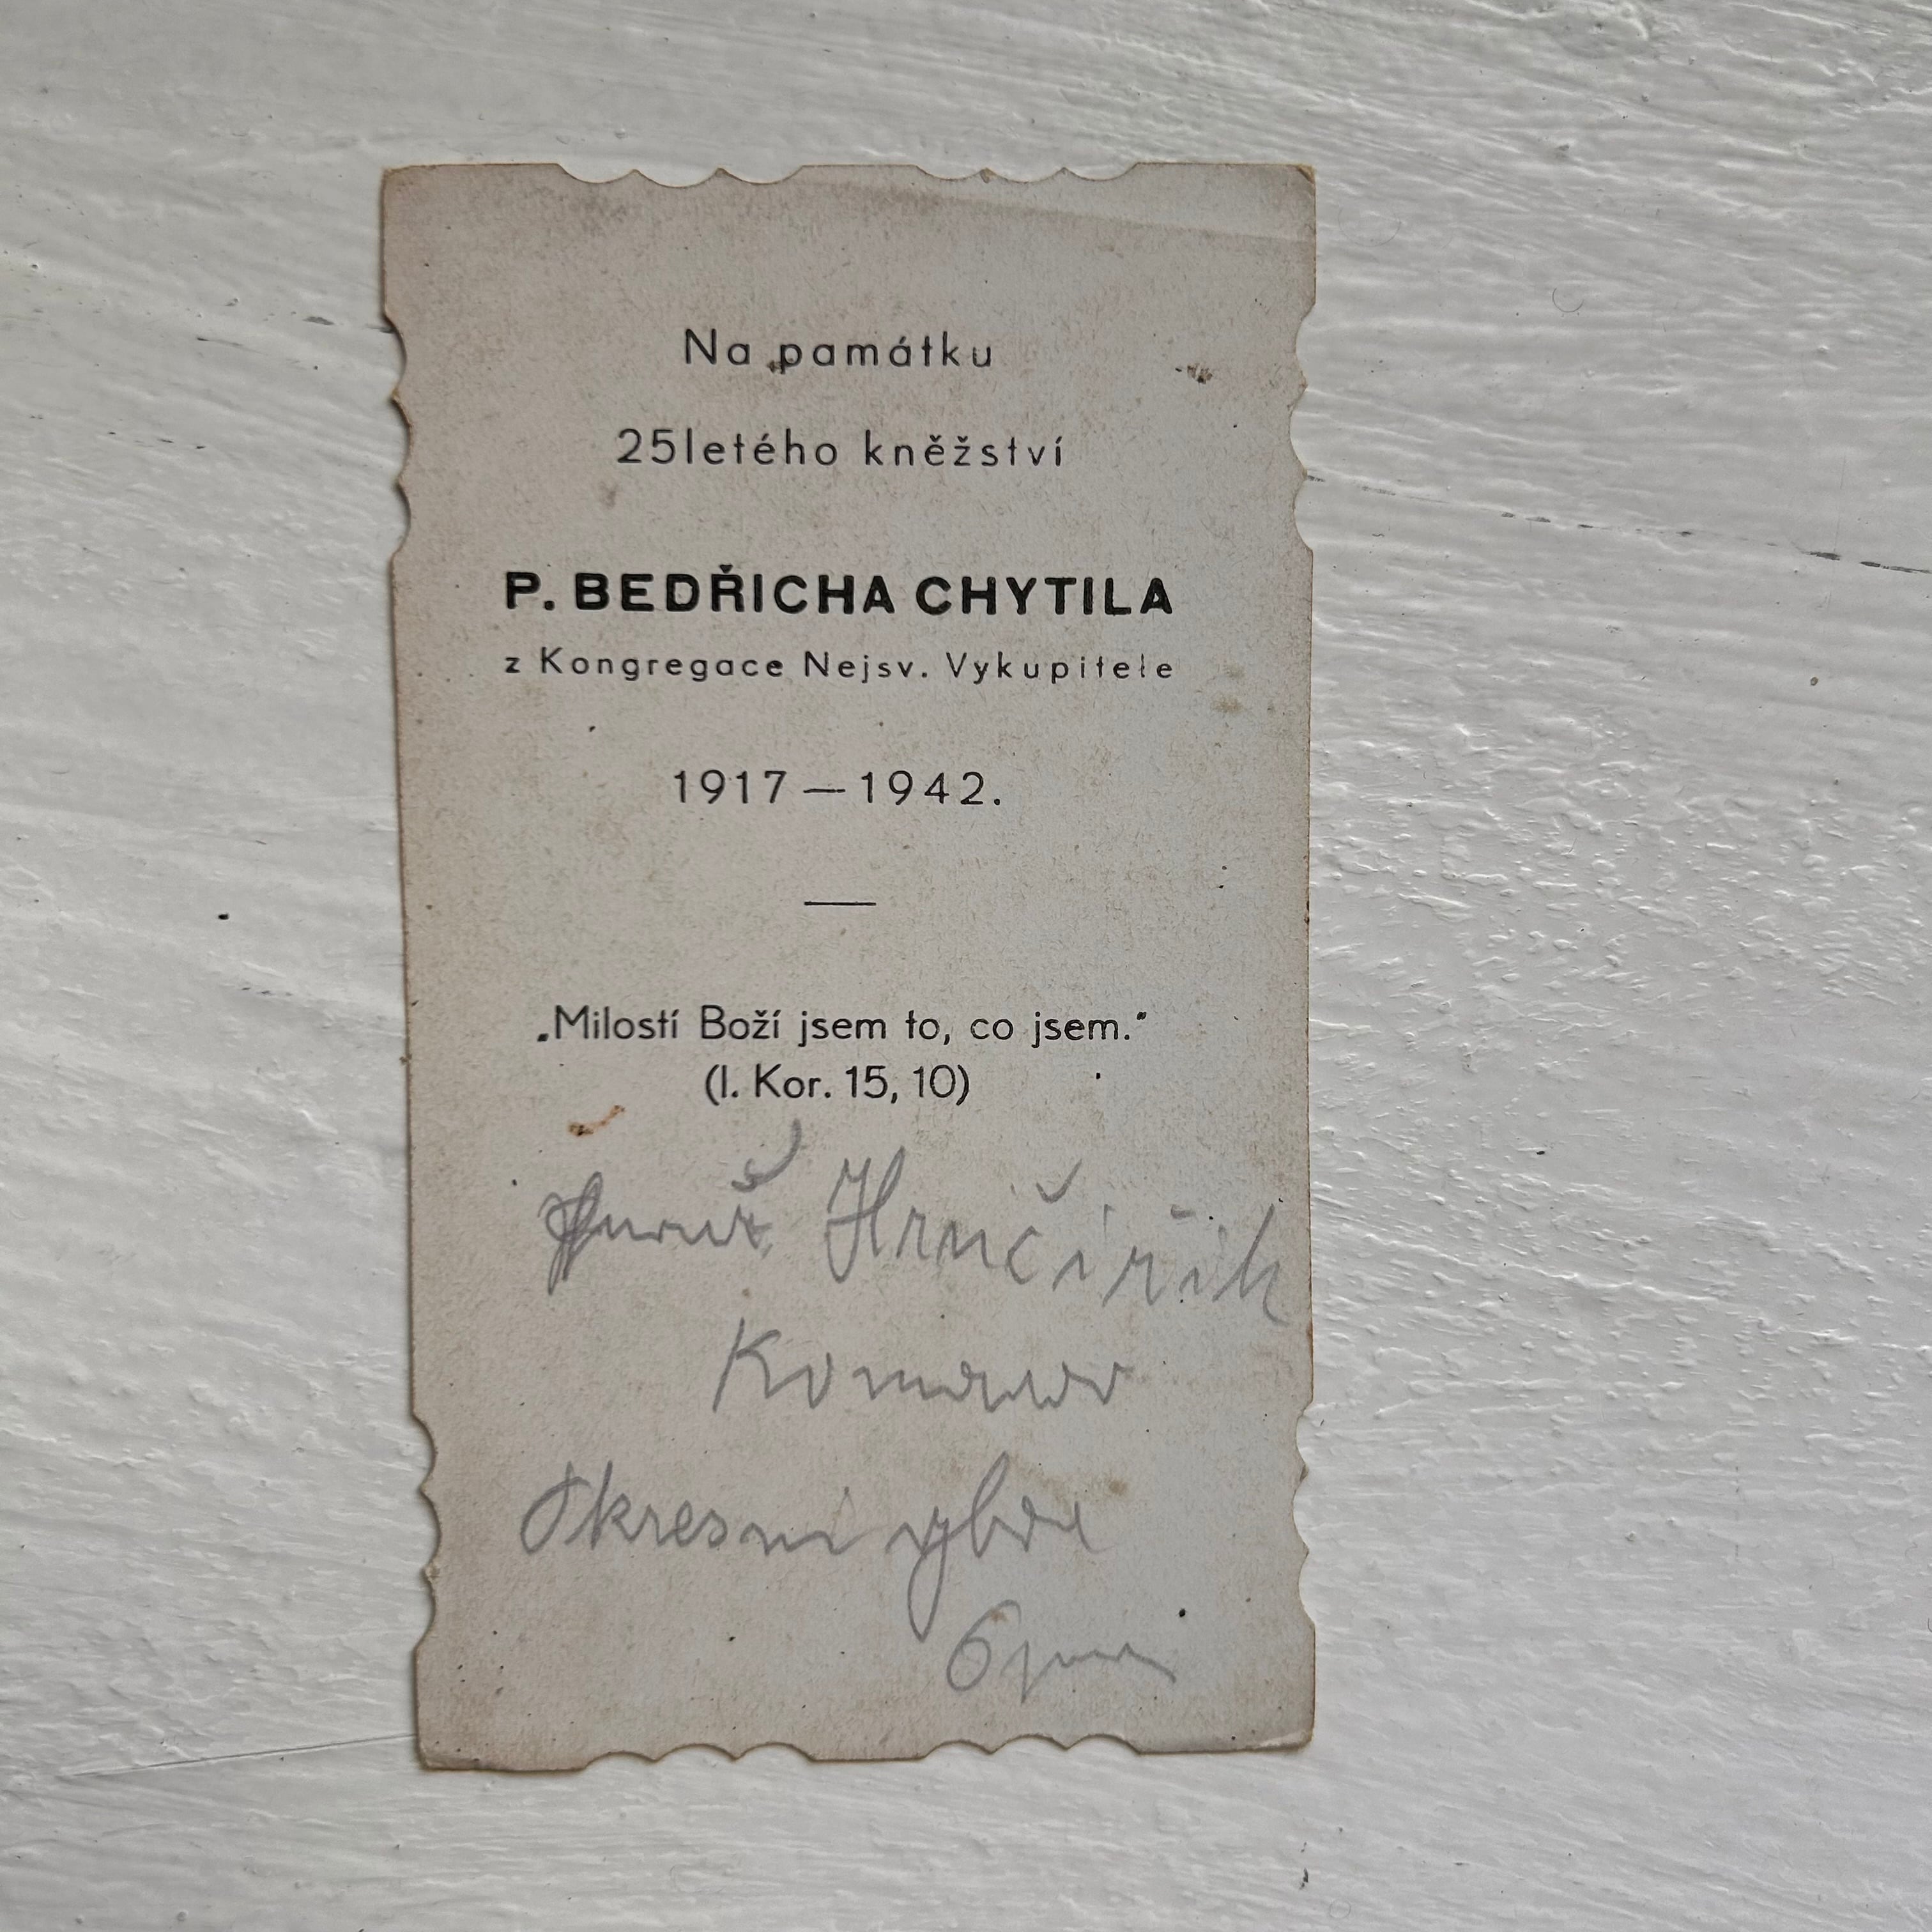 Na památku
25letého kněžství
P. BEDŘICHA CHYTILA
z Kongregace Nejsv. Vykupitele
1917 — 1942.
„Milostí Boží jsem to, co jsem."
(I. Kor. 15, 10)
Hrnčiřík
Okresní